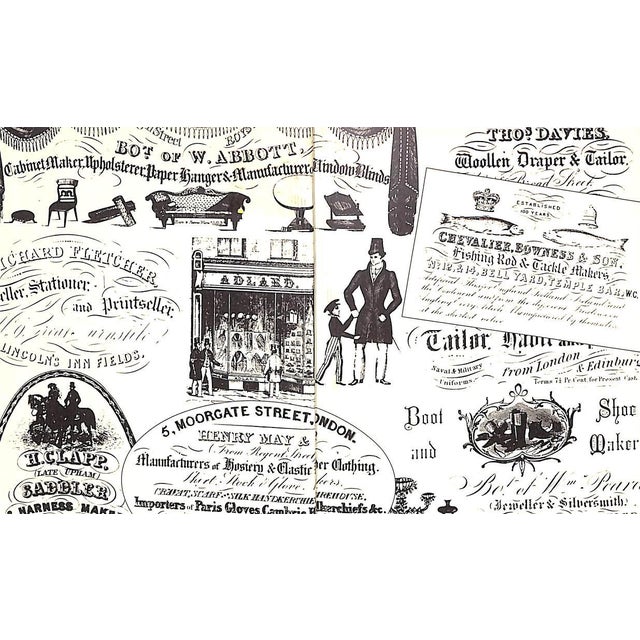 Street BOYS
BOT. OF W. ABBOTT,
Cabinet Maker, Upholsterer, Paper Hanger & Manufacturer
Window Blinds
THOS. DAVIES.
Woollen Draper & Tailor,
Broad Street
ESTABLISHED
100 YEARS
CHEVALIER, BOWNESS & SON,
Fishing Rod & Tackle Makers,
No. 12, & 14, BELL YARD, TEMPLE BAR, W.C.
RICHARD FLETCHER
eller, Stationer,
and Printseller,
LINCOLN'S INN FIELDS.
ADLARD.
Tailor, Habit
Naval & Military
Uniforms.
from London
& Edinburg
Terms 7½ Pr. Cent. for Present Cash.
H. CLAPP.
(LATE UPHAM)
SADDLER
HARNESS MAK
5, MOORGATE STREET,
ONDON.
HENRY MAY &
(From Regent Street)
Manufacturers of Hosiery & Elastic
per Clothing.
Sheet, Stock & Glove
ers.
CRAVAT, SCARF, SILK HANDKERCHIE
REHOUSE.
Importers of Paris Gloves Cambric H
dkerchiefs &c.
Boot
and
Shoe
Maker
Bot. of Wm. Pearc
(Jeweller & Silversmith)